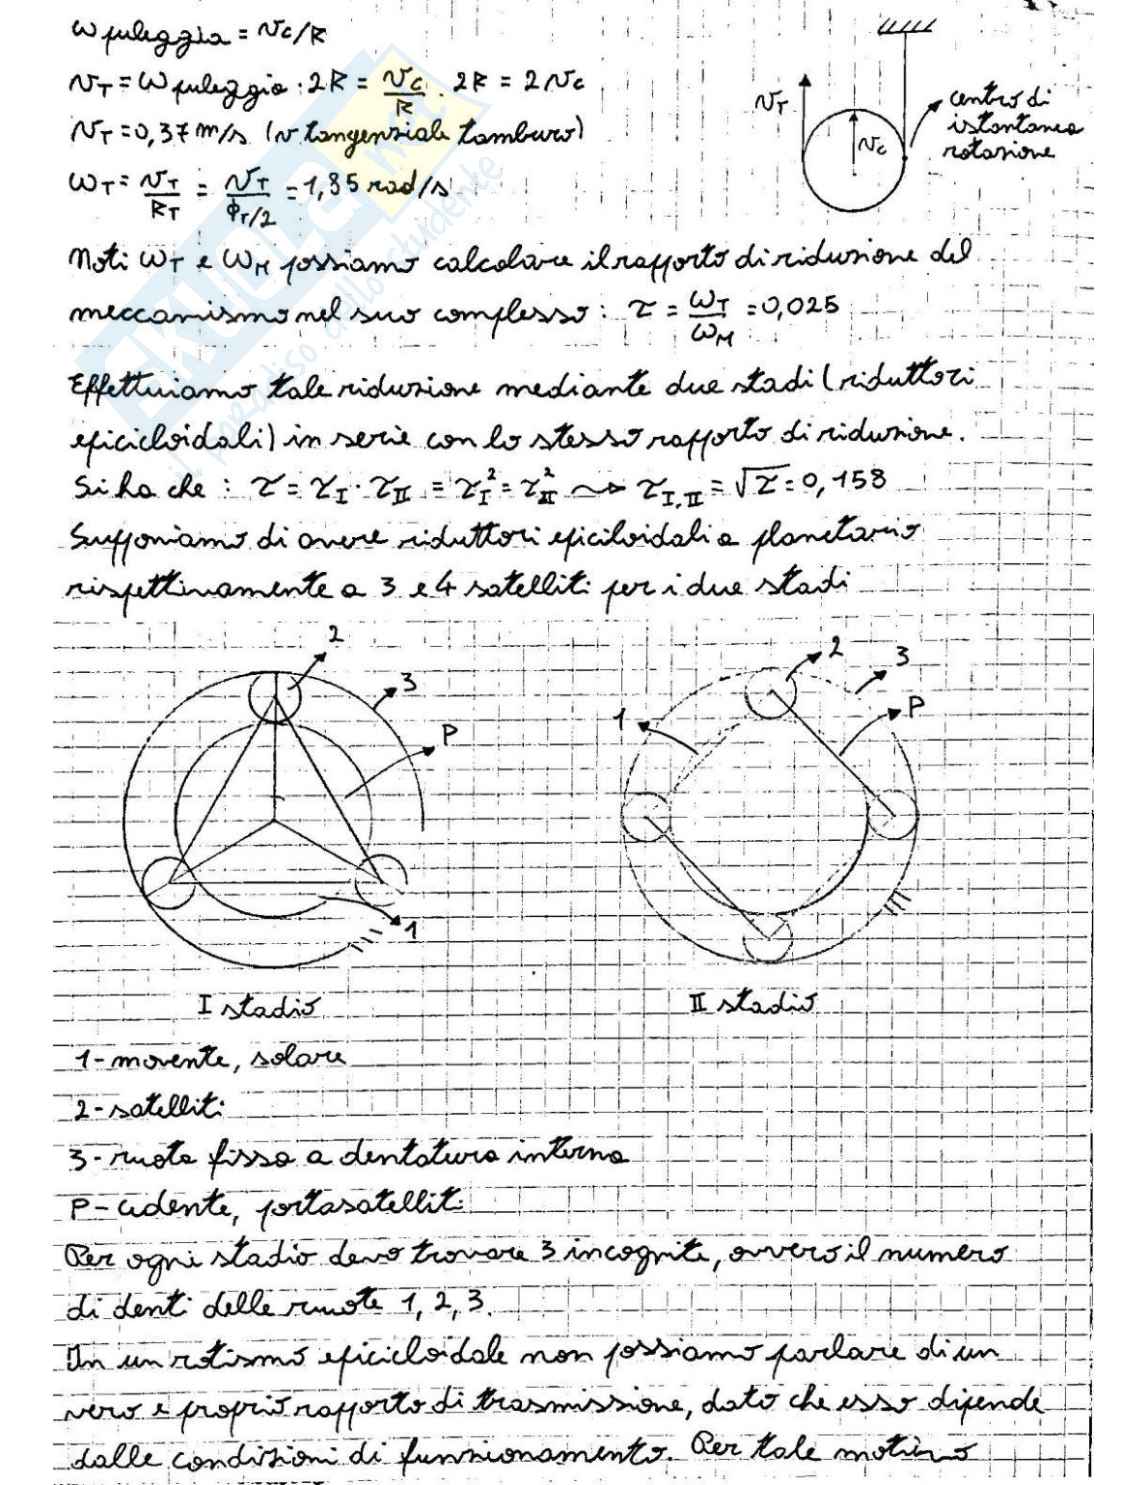 ω puleggia = vc/R
vT = ω puleggia · 2R = vc/R · 2R = 2vc
vT = 0,37 m/s (v tangenziale tamburo)
ωT = vT/RT = vT/ΦT/2 = 1,85 rad/s
vT
vc
centro di
istantanea
rotazione
Noti ωT e ωM possiamo calcolare il rapporto di riduzione del
meccanismo nel suo complesso: τ = ωT/ωM = 0,025
Effettuiamo tale riduzione mediante due stadi (riduttori
epicicloidali) in serie con lo stesso rapporto di riduzione.
Si ha che: τ = τI · τII = τI² = τII² ~> τI,II = √τ = 0,158
Supponiamo di avere riduttori epiciloidali a planetario
rispettivamente a 3 e 4 satelliti per i due stadi
2
3
P
1
2
3
P
1
I stadio
II stadio
1- movente, solare
2- satelliti
3- ruota fissa a dentatura interna
P- cedente, portasatelliti
Per ogni stadio devo trovare 3 incognite, ovvero il numero
di denti delle ruote 1, 2, 3.
In un rotismo epicicloidale non possiamo parlare di un
vero e proprio rapporto di trasmissione, dato che esso dipende
dalle condizioni di funzionamento. Per tale motivo
SKUOLA.net
il paradiso dello studente